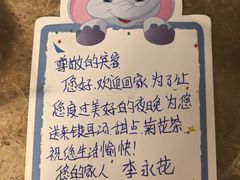 尊敬的宾客
您好,欢迎回家为了让
您度过美好的夜晚为您
送来银耳汤.甜点.菊花茶.
祝您生活愉快!
您的家人 李永花